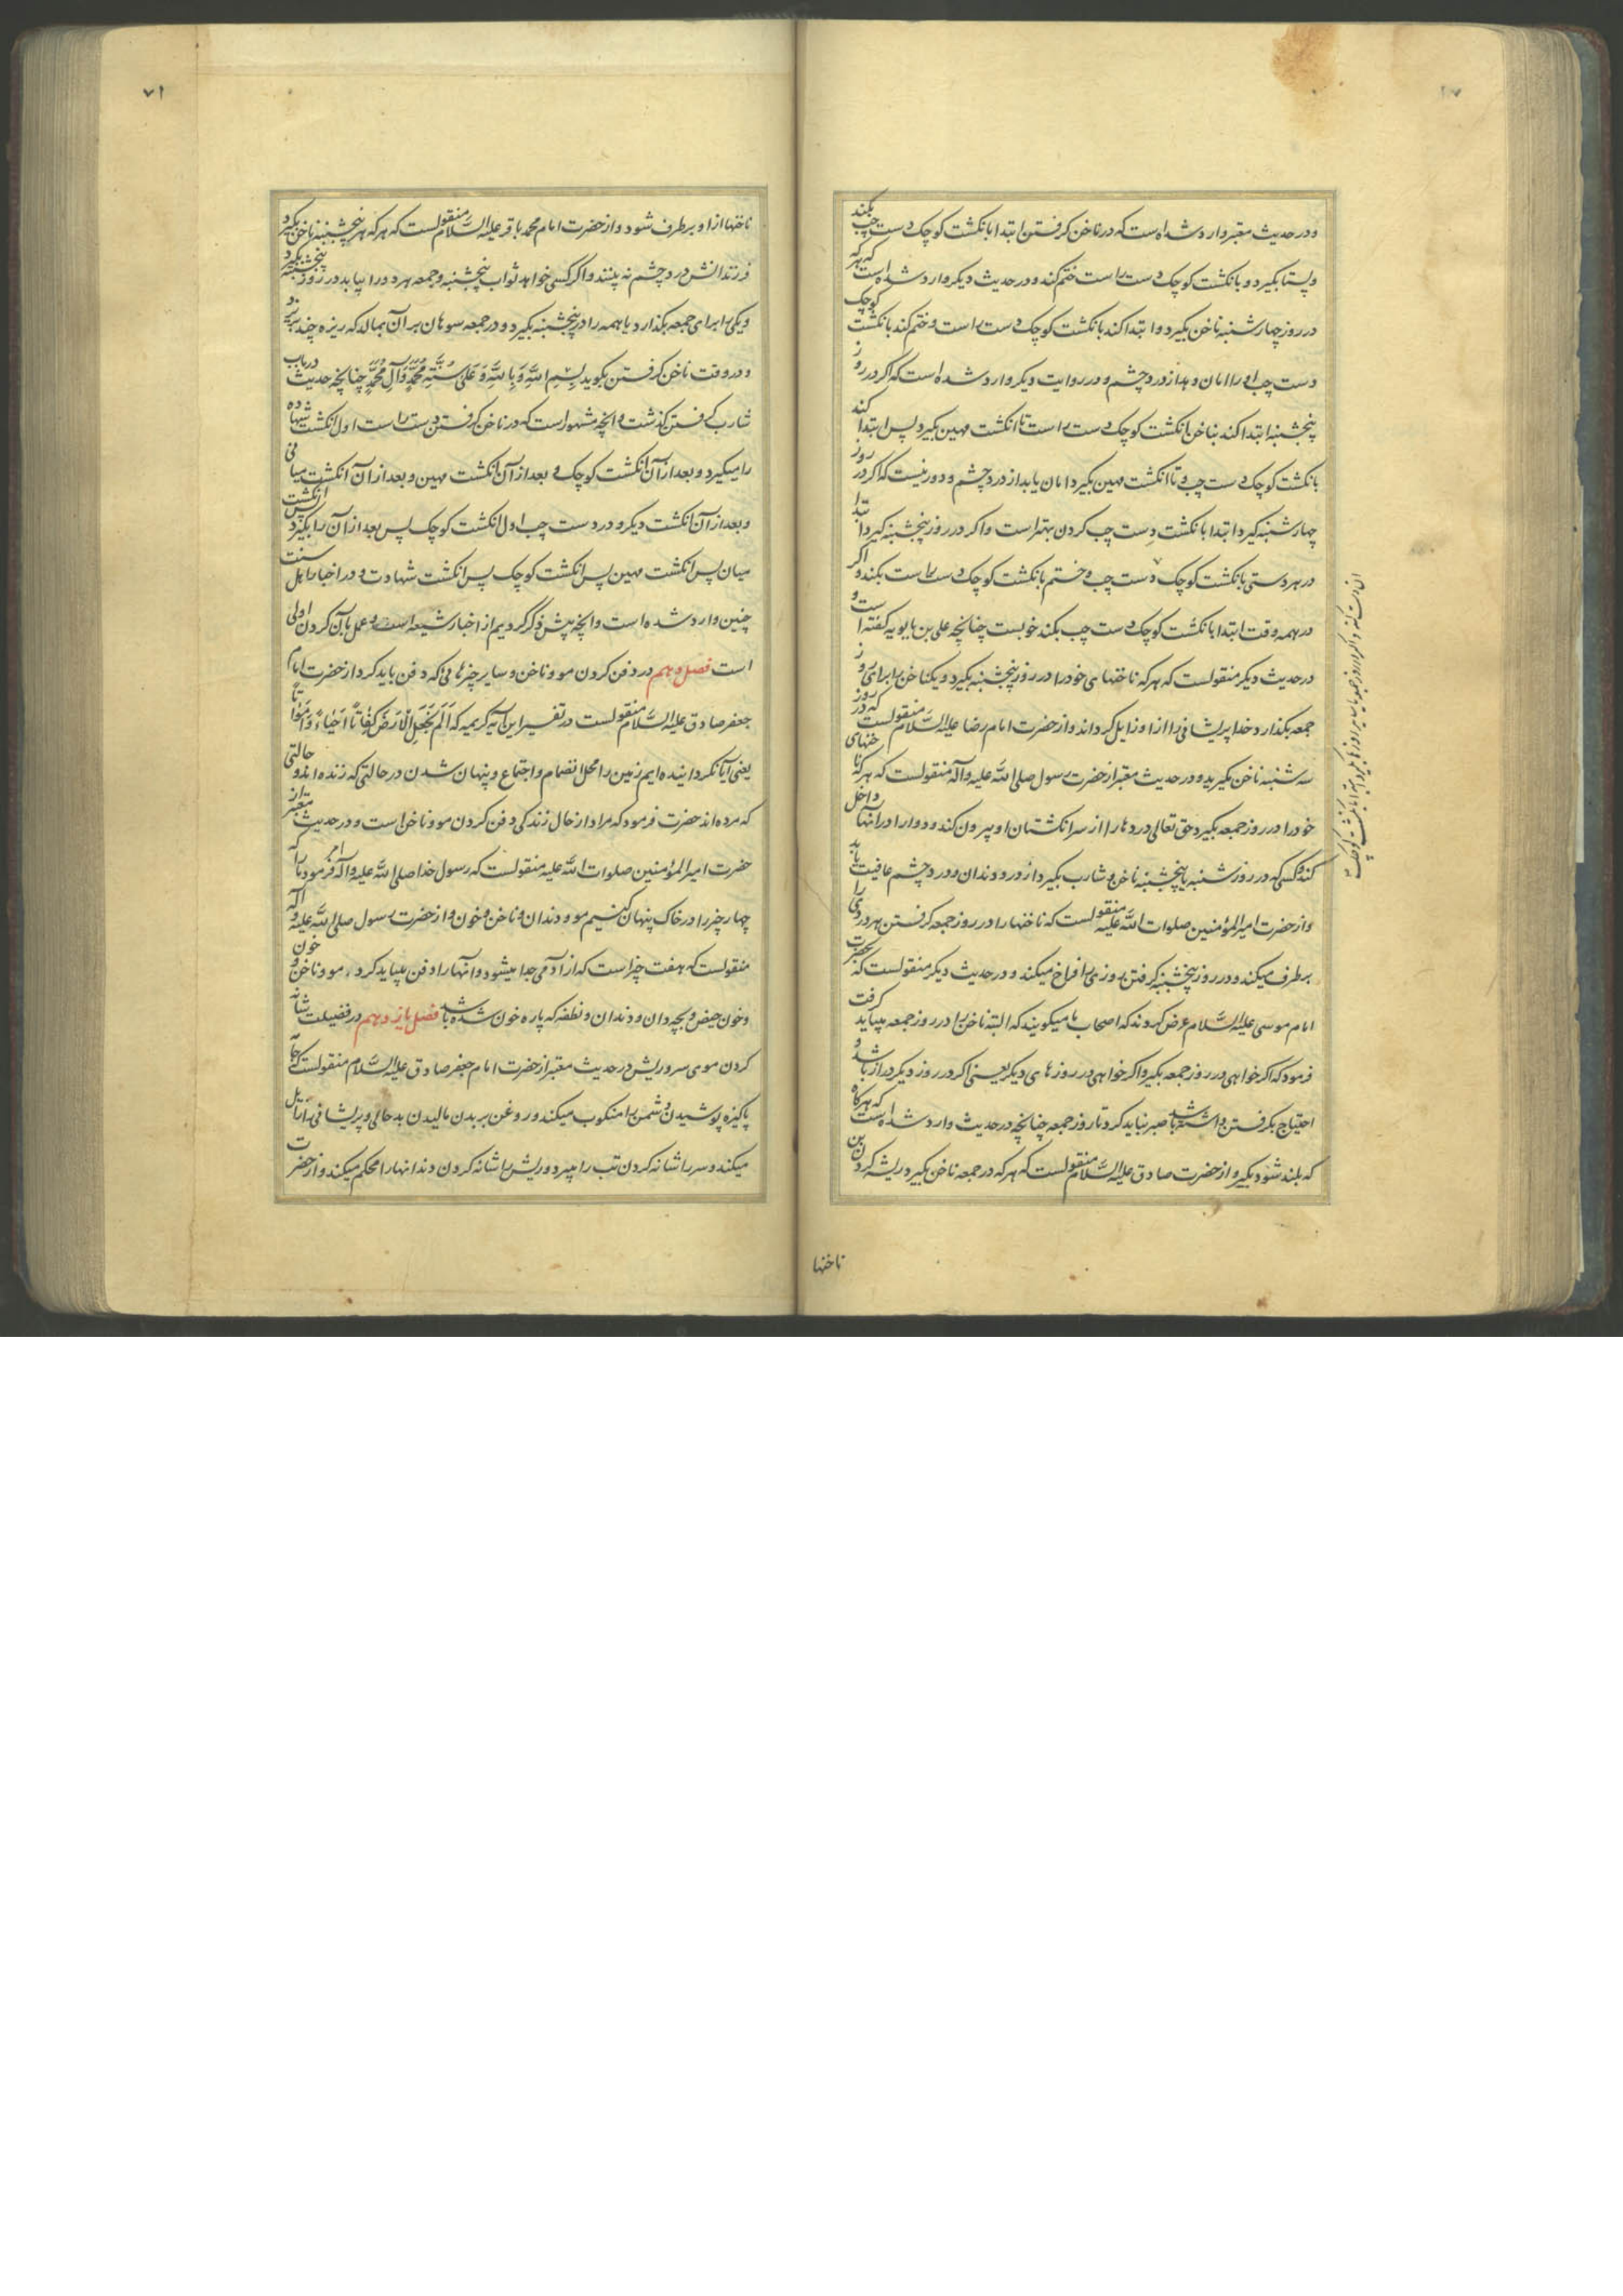 و در حدیث معتبر وارد شده است که در ناخن گرفتن ابتدا بانگشت کوچک دست چپ بکند
و پس تا بگیرد و بانگشت کوچک دست راست ختم کند و در حدیث دیگر وارد شده است که هر که
در روز چهارشنبه ناخن بگیرد و ابتدا کند بانگشت کوچک دست راست و ختم کند بانگشت کوچک
دست چپ او را امان دهد از درد چشم و در روایت دیگر وارد شده است که اگر در روز
پنجشنبه ابتدا کند بناخن انگشت کوچک دست راست تا انگشت مهین بگیرد پس ابتدا کند
بانگشت کوچک دست چپ و تا انگشت مهین بگیرد امان یابد از درد چشم و دور نیست که اگر در روز
چهارشنبه گیرد ابتدا بانگشت دست چپ کردن بهتر است و اگر در روز پنجشنبه گیرد ابتدا
در هر دستی بانگشت کوچک دست چپ و ختم بانگشت کوچک دست راست بکند و اگر
در همه وقت ابتدا بانگشت کوچک دست چپ بکند خوبست چنانچه علی بن بابویه گفته است و
در حدیث دیگر منقولست که هر که ناخنهای خود را در روز پنجشنبه بگیرد و یکناخن را برای روز
جمعه بگذارد خدا پریشانی را از او زایل گرداند و از حضرت امام رضا علیه السلام منقولست که در روز
سه شنبه ناخن بگیرید و در حدیث معتبر از حضرت رسول صلی الله علیه و آله منقولست که هر که ناخنهای
خود را در روز جمعه بگیرد حق تعالی دردها را از سر انگشتهان او بیرون کند و دوا را در آنها داخل
کند و کسی که در روز شنبه یا پنجشنبه ناخن و شارب بگیرد از درد دندان و درد چشم عافیت یابد
و از حضرت امیر المؤمنین صلوات الله علیه منقولست که ناخنها را در روز جمعه گرفتن هر دردی را
برطرف میکند و در روز پنجشنبه گرفتن روزی را فراخ میکند و در حدیث دیگر منقولست که بحضرت
امام موسی علیه السلام عرض کردند که اصحاب ما میگویند که البته ناخن را در روز جمعه میباید گرفت
فرمود که اگر خواهی در روز جمعه بگیر و اگر خواهی در روزهای دیگر یعنی اگر در روز دیگر دراز باشد و
احتیاج بگرفتن داشته باشد صبر نباید کرد تا روز جمعه چنانچه در حدیث وارد شده است که هرگاه
که بلند شود بگیر و از حضرت صادق علیه السلام منقولست که هر که در جمعه ناخن بگیرد ریشه کردن بن
ناخنها
ناخنها از او برطرف شود و از حضرت امام محمد باقر علیه السلام منقولست که هر که هر پنجشنبه ناخن بگیرد
فرزندانش درد چشم نه بینند و اگر کسی خواهد ثواب پنجشنبه و جمعه هر دو را بیابد در روز پنجشنبه بگیرد
و یکی را برای جمعه بگذارد یا همه را در پنجشنبه بگیرد و در جمعه سوهان بر آن بمالد که ریزه چند بریزد
و در وقت ناخن گرفتن بگوید بِسْمِ اللهِ وَ بِاللهِ وَ عَلٰی سُنَّةِ مُحَمَّدٍ وَ آلِ مُحَمَّدٍ چنانچه حدیث در باب
شارب گرفتن گذشت و آنچه مشهور است که در ناخن گرفتن دست راست اول انگشت شهاده
را میگیرد و بعد از آن انگشت کوچک و بعد از آن انگشت مهین و بعد از آن انگشت میانی
و بعد از آن انگشت دیگر و در دست چپ اول انگشت کوچک پس بعد از آن را بگیرد پس انگشت
میان پس انگشت مهین پس انگشت کوچک پس انگشت شهادت و در اخبار اهل سنت
چنین وارد شده است و آنچه پیش ذکر کردیم از اخبار شیعه است و عمل بآن کردن اولی
است فصل دهم در دفن کردن مو و ناخن و سایر چیزهائی که دفن باید کرد از حضرت امام
جعفر صادق علیه السلام منقولست در تفسیر این آیه کریمه که اَلَمْ نَجْعَلِ الْاَرْضَ کِفَاتاً اَحْیَاءً وَ اَمْوَاتاً
یعنی آیا نگردانیده ایم زمین را محل انضمام و اجتماع و پنهان شدن در حالتی که زنده اند و حالتی
که مرده اند حضرت فرمود که مراد از حال زندگی دفن کردن مو و ناخن است و در حدیث معتبر از
حضرت امیر المؤمنین صلوات الله علیه منقولست که رسول خدا صلی الله علیه و آله امر فرمود ما را که
چهار چیز را در خاک پنهان کنیم مو و دندان و ناخن و خون و از حضرت رسول صلی الله علیه و آله
منقولست که هفت چیز است که از آدمی جدا میشود و آنها را دفن میباید کرد، مو و ناخن و خون
و خون حیض و بچه دان و دندان و نطفه که پاره خون شده باشد فصل یازدهم در فضیلت شانه
کردن موی سر و ریش در حدیث معتبر از حضرت امام جعفر صادق علیه السلام منقولست که جامه
پاکیزه پوشیدن دشمن را منکوب میکند و روغن بر بدن مالیدن بد حالی و پریشانی را زایل
میکند و سر را شانه کردن تب را میبرد و ریش را شانه کردن دندانها را محکم میکند و از حضرت